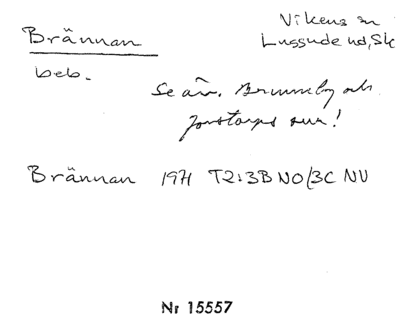 Brännan
Vikens sn
Luggude hd, Sk
beb.
Se äv. Brunnby och
Jonstorps snr!
Brännan 1971 T2:3B NO/3C NV
Nr 15557